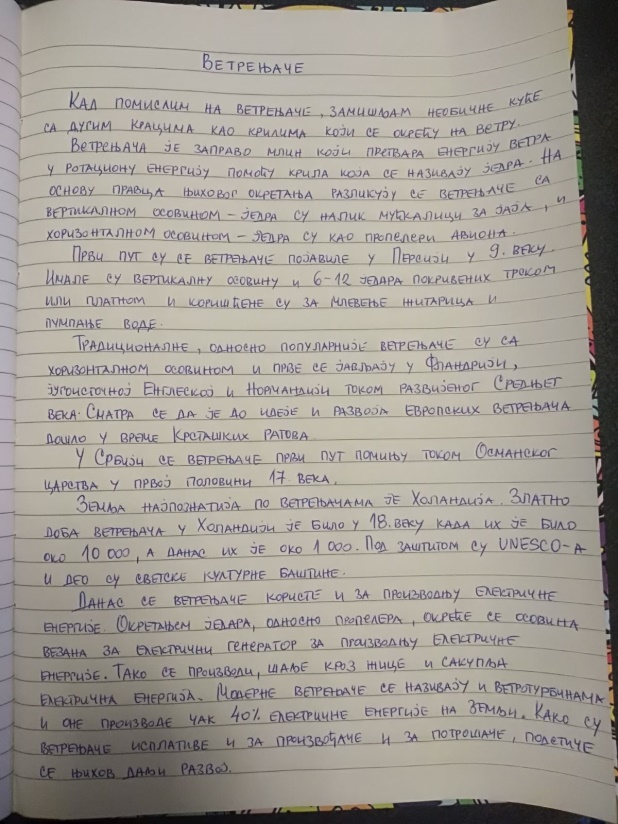 Ветрењаче
Кад помислим на ветрењаче, замишљам необичне куће
са дугим крацима као крилима који се окрећу на ветру.
Ветрењача је заправо млин који претвара енергију ветра
у ротациону енергију помоћу крила која се називају једра. На
основу правца њиховог окретања разликују се ветрењаче са
вертикалном осовином – једра су налик мућкалици за јаја, и
хоризонталном осовином – једра су као пропелери авиона.
Први пут су се ветрењаче појавиле у Персији у 9. веку.
Имале су вертикалну осовину и 6-12 једара покривених трском
или платном и коришћене су за млевење житарица и
пумпање воде.
Традиционалне, односно популарније ветрењаче су са
хоризонталном осовином и прве се јављају у Фландрији,
југоисточној Енглеској и Нормандији током развијеног Средњег
века. Сматра се да је до идеје и развоја европских ветрењача
дошло у време Крсташких ратова.
У Србији се ветрењаче први пут помињу током Османског
царства у првој половини 17. века.
Земља најпознатија по ветрењачама је Холандија. Златно
доба ветрењача у Холандији је било у 18. веку када их је било
око 10 000, а данас их је око 1 000. Под заштитом су UNESCO-а
и део су светске културне баштине.
Данас се ветрењаче користе и за производњу електричне
енергије. Окретањем једара, односно пропелера, окреће се осовина
везана за електрични генератор за производњу електричне
енергије. Тако се производи, шаље кроз жице и сакупља
електрична енергија. Модерне ветрењаче се називају и ветротурбинама
и оне производе чак 40% електричне енергије на Земљи. Како су
ветрењаче исплативе и за произвођаче и за потрошаче, подстиче
се њихов даљи развој.